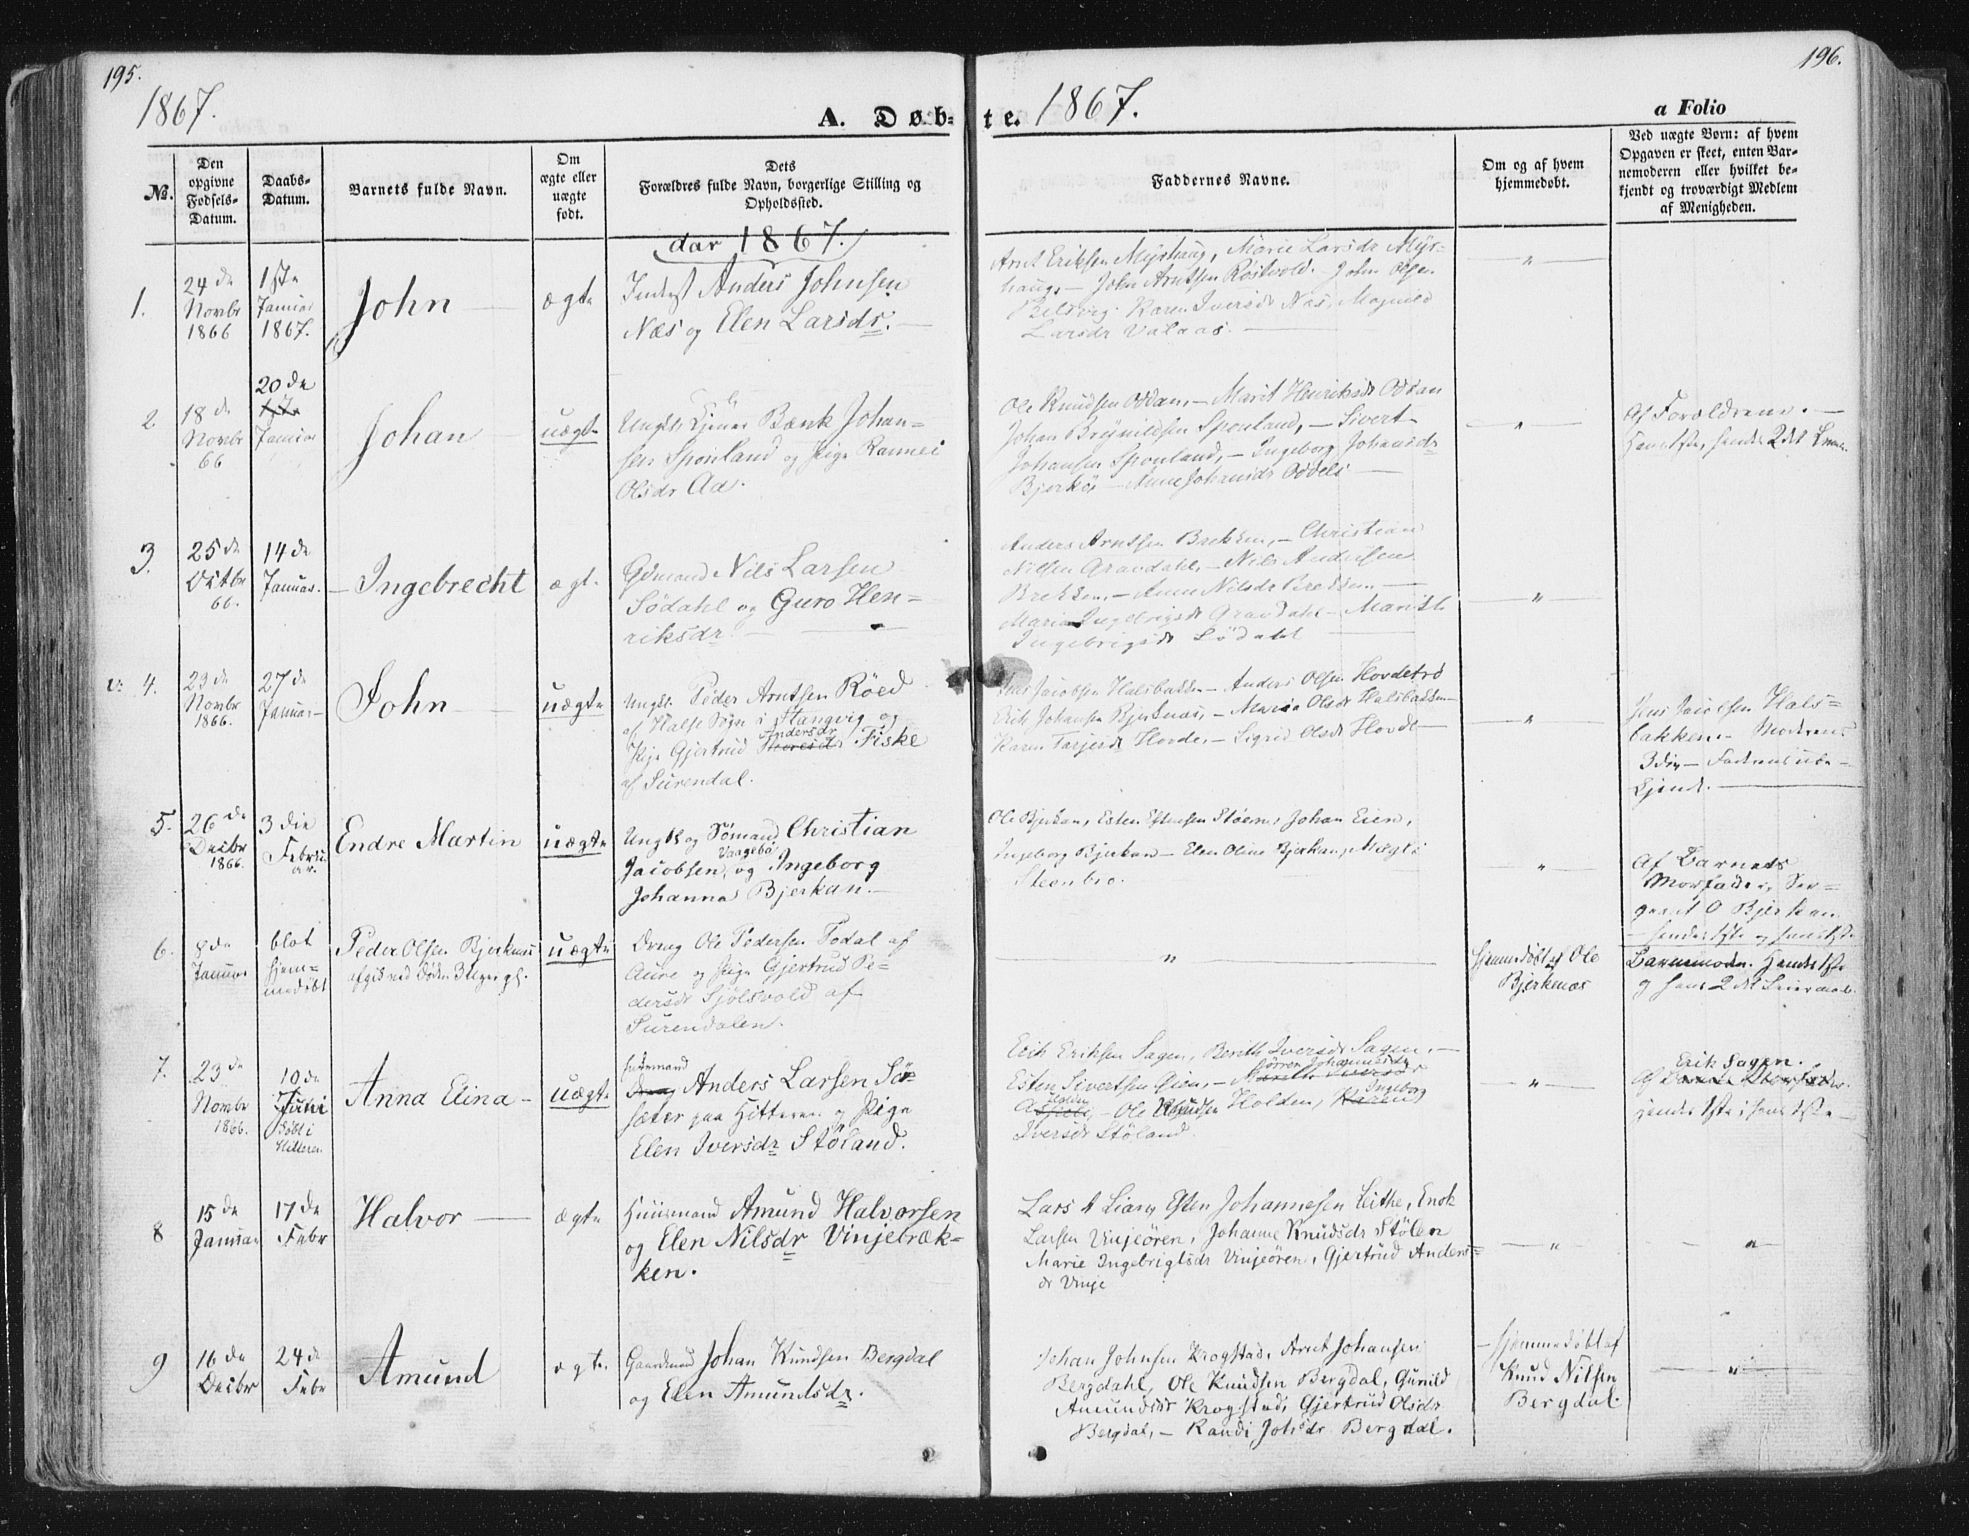 195.
196.
1867.
A. Døb-
te. 1867.
a Folio
No.
Den opgivne Fødsels-Datum.
Daabs-Datum.
Barnets fulde Navn.
Om ægte eller uægte født.
Dets
Forældres fulde Navn, borgerlige Stilling og
Opholdssted.
Faddernes Navne.
Om og af hvem
hjemmedøbt.
Ved uægte Børn: af hvem
Opgaven er skeet, enten Bar-
nemoderen eller hvilket be-
kjendt og troværdigt Medlem
af Menigheden.
1867.
1.
24de
Novbr
1866
1ste
Januar
1867.
John
ægte
Inderst Anders Johnsen
Næs og Elen Larsdr.
Arnt Eriksen Myrhaug, Marie Larsdr Myr-
haug, - John Arntsen Røstvold. John
Belsvig. Karen Iversdr Næs, Magnild
Larsdr Valaas.
2
18de
Novbr
66
20de
Januar
Johan
uægte
Ungkl Bænk Johan-
sen Sponland og Pige
Olsdr Aa.
Ole Knudsen Oddan, - Marit Henriksdr Oddan
Johan Brynildsen Sponland, - Sivert
Johansen Sponland, - Ingeborg Johansdr
Bjerkø - Anne Johansdr
Af Forældrene. -
hendes 2det
3.
25de
Octbr
66.
14de
Januar.
Ingebrecht
ægt.
Gdmand Nils Larsen
Södahl og Guro Hen-
riksdr.
Anders Arntsen Brekken, - Christian
Nilsen Gravdahl, - Nils Andersen
Brekken, - Anne Nilsdr Brekken. -
Maria Ingebrigtsdr Gravdahl - Marith
Ingebrigtsdr Södahl
4.
23de
Novbr
1866.
27de
Januar
John
uægte
Ungkl. Peder Arntsen Röed
af Halse Sogn i Stangvig og
Pige Gjertrud Andersdr Fiske
af Surendal.
Jacobsen Halsbakken - Anders Olsen Hovdetrö
Erik Johansen Bjerknæs, - Maria Olsdr Halsbakken
Karen Hovde, - Sigrid Olsdr Hovde
Jacobsen Hals-
bakken. - Moderens
3die - Faderens ube-
kjendt.
5.
26de
Decbr
1866.
3die
Febru
ar.
Endre Martin
uægte
Ungk og Sömand Christian
Vaagebö
Jacobsen, og Ingeborg
Johanna Bjerkan.
Ole Bjerkan, Esten Estensen Stöen, Johan Eien,
Ingeborg Bjerkan - Elen Oline Bjerkan,
Steenbro.
Af Barnets
Morfader, Ser-
gent O Bjerkan
6.
8de
Januar
blot
hjem-
medøbt
Peder Olsen Bjerknæs
afgik ved Døden 3 Uger gl.
uægte
Dreng Ole Pedersen Todal af
Aure og Pige Gjertrud Pe-
dersdr Sjölsvold af
Surendalen.
Hjemmedøbt af Ole
Bjerknæs
Barnemodr. Hendes 1ste
og hans 2det Leiermaal.
7.
23de
Novbr
1866.
10de
Døbt i
Hitteren
Anna Elina
uægte
Anders Larsen Sö-
sæter paa Hitteren og Pige
Elen Iversdr Stöland.
Erik Eriksen Sagen, Berith Iversdr Sagen, -
Esten Sivertsen Øien, - Johannesdr
Holden - Ole Knudsen Holden, Ingeborg
Iversdr Stöland.
Erik Sagen.
hendes 1ste, hans 1ste
8
15de
Januar
17de
Febr
Halvor
ægte
Huusmand Amund Halvorsen
og Elen Nilsdr Vinjebræk-
ken.
Lars A Liang, Esten Johannesen Leithe, Enok
Larsen Vinjeören, Johanne Knudsdr Stölen
Marie Ingebrigtsdr Vinjeören, Gjertrud Anders-
dr Vinje
9
16de
Decbr
24de
Febr
Amund
ægte.
Gaardmand Johan Knudsen Bergdal
og Elen Amundsdr.
Johan Johnsen Krogstad, Arnt Johansen
Bergdahl, Ole Knudsen Bergdal, Gunild
Amundsdr Krogstad, Gjertrud Olsdr
Bergdal, - Randi Johsdr Bergdal.
Hjemmedøbt af
Knud Nilsen
Bergdal.